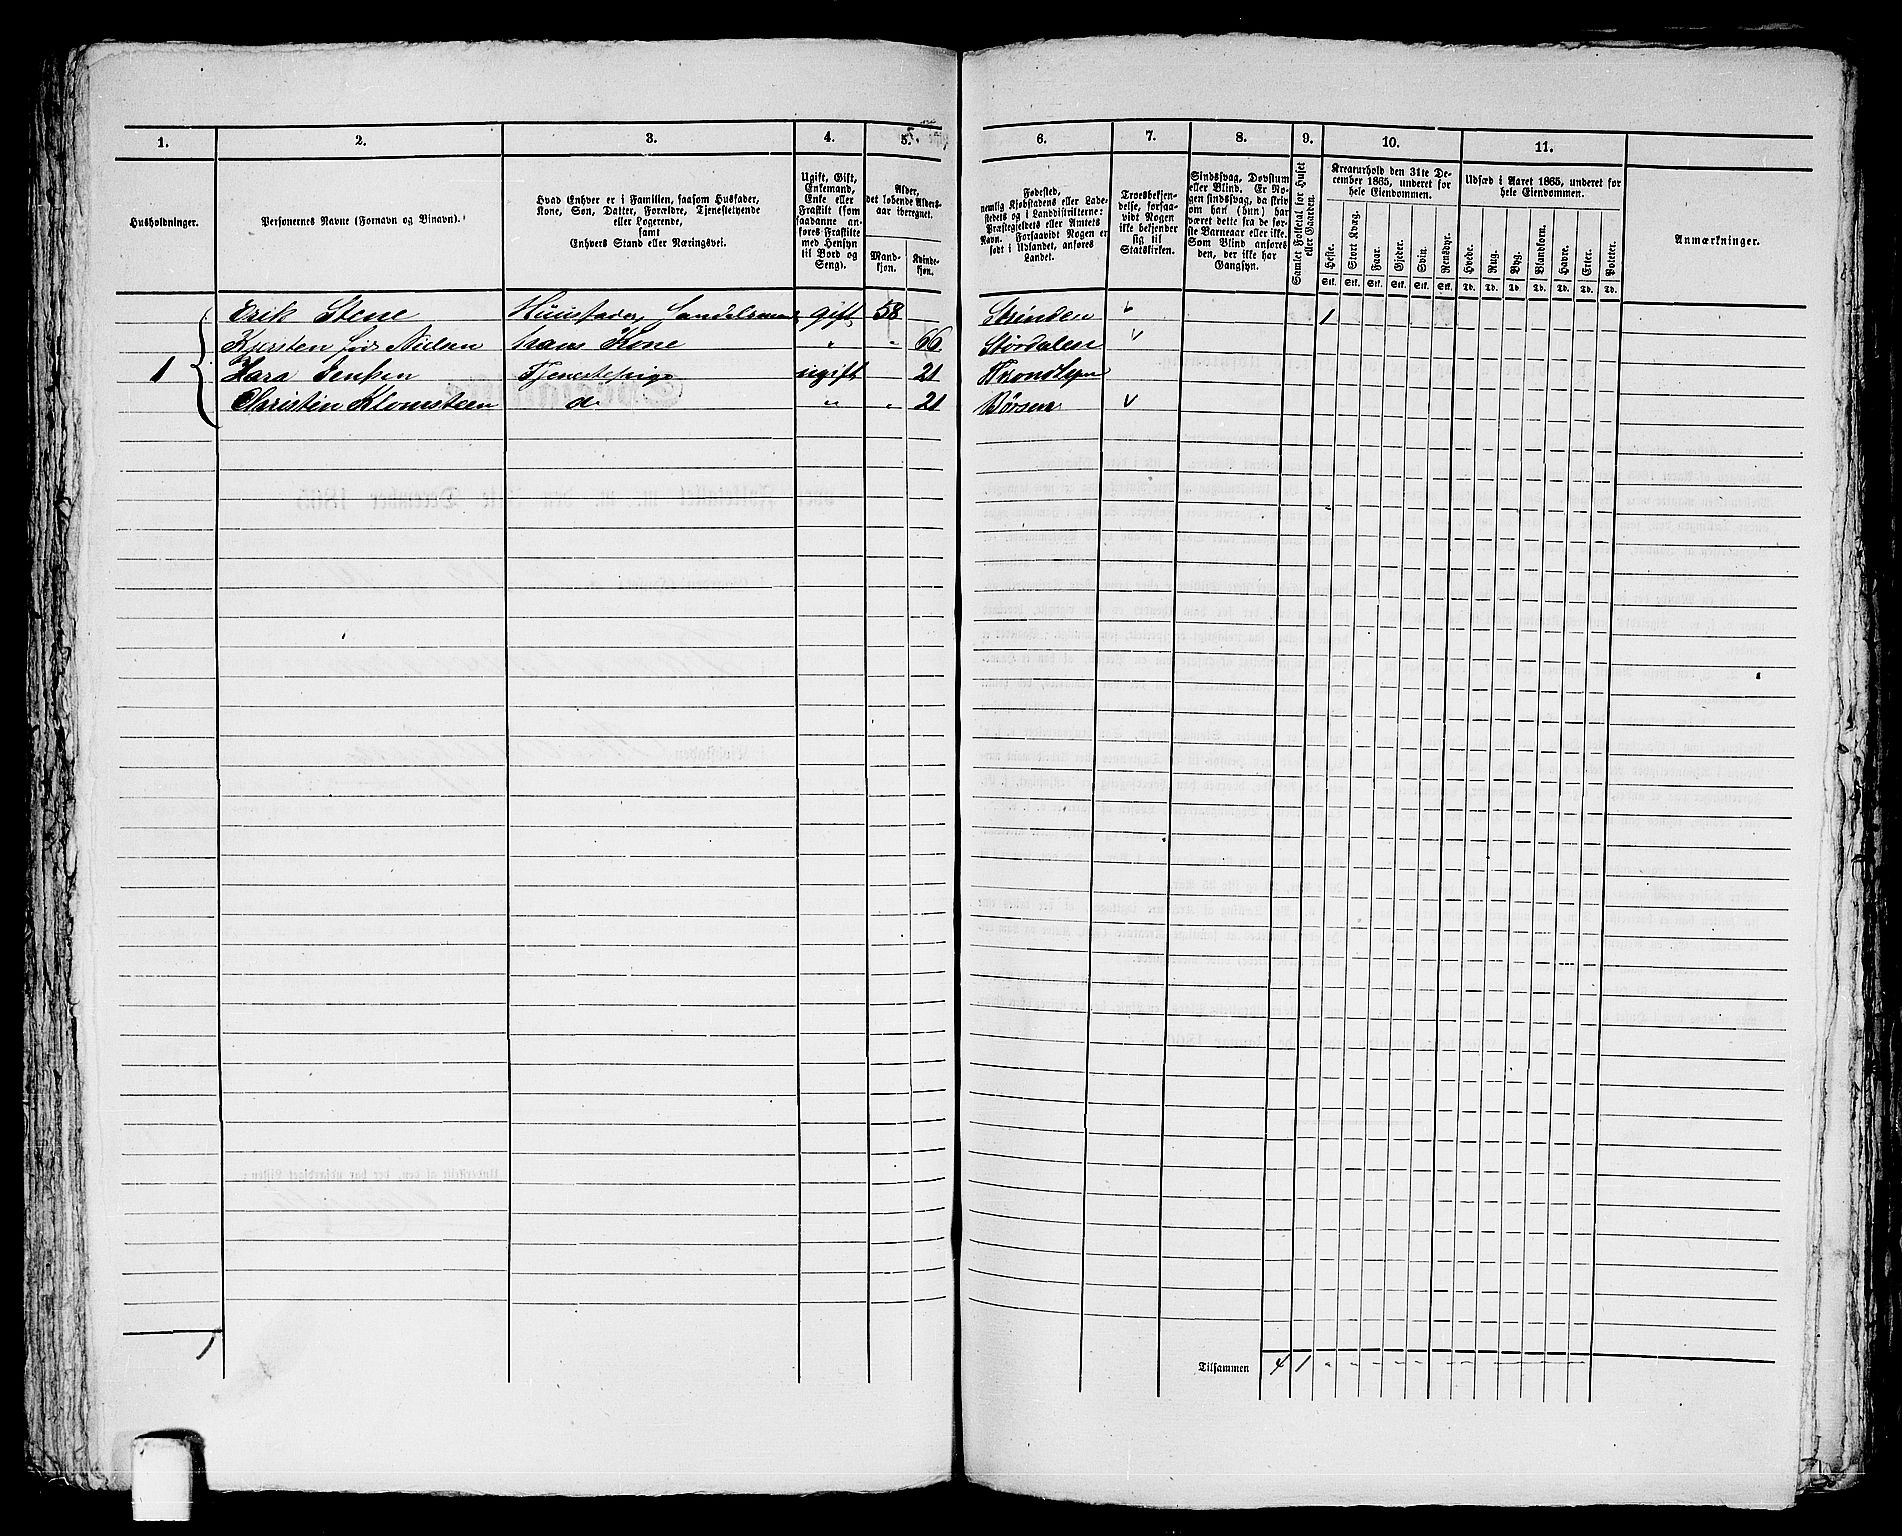 1. 2. 3. 4. 5. 6. 7. 8. 9. 10. 11.
Husholdninger.
Personernes Navne (Fornavn og Binavn).
Hvad Enhver er i Familien, saasom Husfader,
Kone, Søn, Datter, Forældre, Tjenestetyende
eller Logerende,
samt
Enhvers Stand eller Næringsvei.
Ugift, Gift,
Enkemand,
Enke eller
Fraskilt (som
saadanne an-
føres Fraskilte
med Hensyn
til Bord og
Seng).
Alder,
det løbende Alders-
aar iberegnet.
Mand-
kjøn.
Kvinde-
kjøn.
Fødested,
nemlig Kjøbstadens eller Lade-
stedets og i Landdistrikterne:
Præstegjeldets eller Amtets
Navn. Forsaavidt Nogen er
født i Udlandet, anføres
Landet.
Troesbekjen-
delse, forsaa-
vidt Nogen
ikke bekjender
sig til
Statskirken.
Sindssvag, Døvstum
eller Blind. Er No-
gen sindssvag, da skriv
om han (hun) har
været dette fra de før-
ste Barneaar eller ikke.
Som Blind anføres
den, der ikke har
Gangsyn.
Samlet Folketal for Huset
eller Gaarden.
Kreaturhold den 31te De-
cember 1865, underet for
hele Eiendommen.
Heste. Stort Kvæg. Faar. Gjeder. Svin. Rensdyr.
Stk. Stk. Stk. Stk. Stk. Stk.
Udsæd i Aaret 1865, underet for
hele Eiendommen.
Hvede. Rug. Byg. Blandkorn. Havre. Erter. Poteter.
Td. Td. Td. Td. Td. Td. Td.
Anmærkninger.
Erik Stene Huusfader, Handelsmand gift 58 Strinden 1
Kjersten født Nielsen hans Kone " " 66 Størdalen
1 Jensen Tjenestepige ugift 21
Christin Klomsteen d " " 21 Børsen
1
Tilsammen 4 1